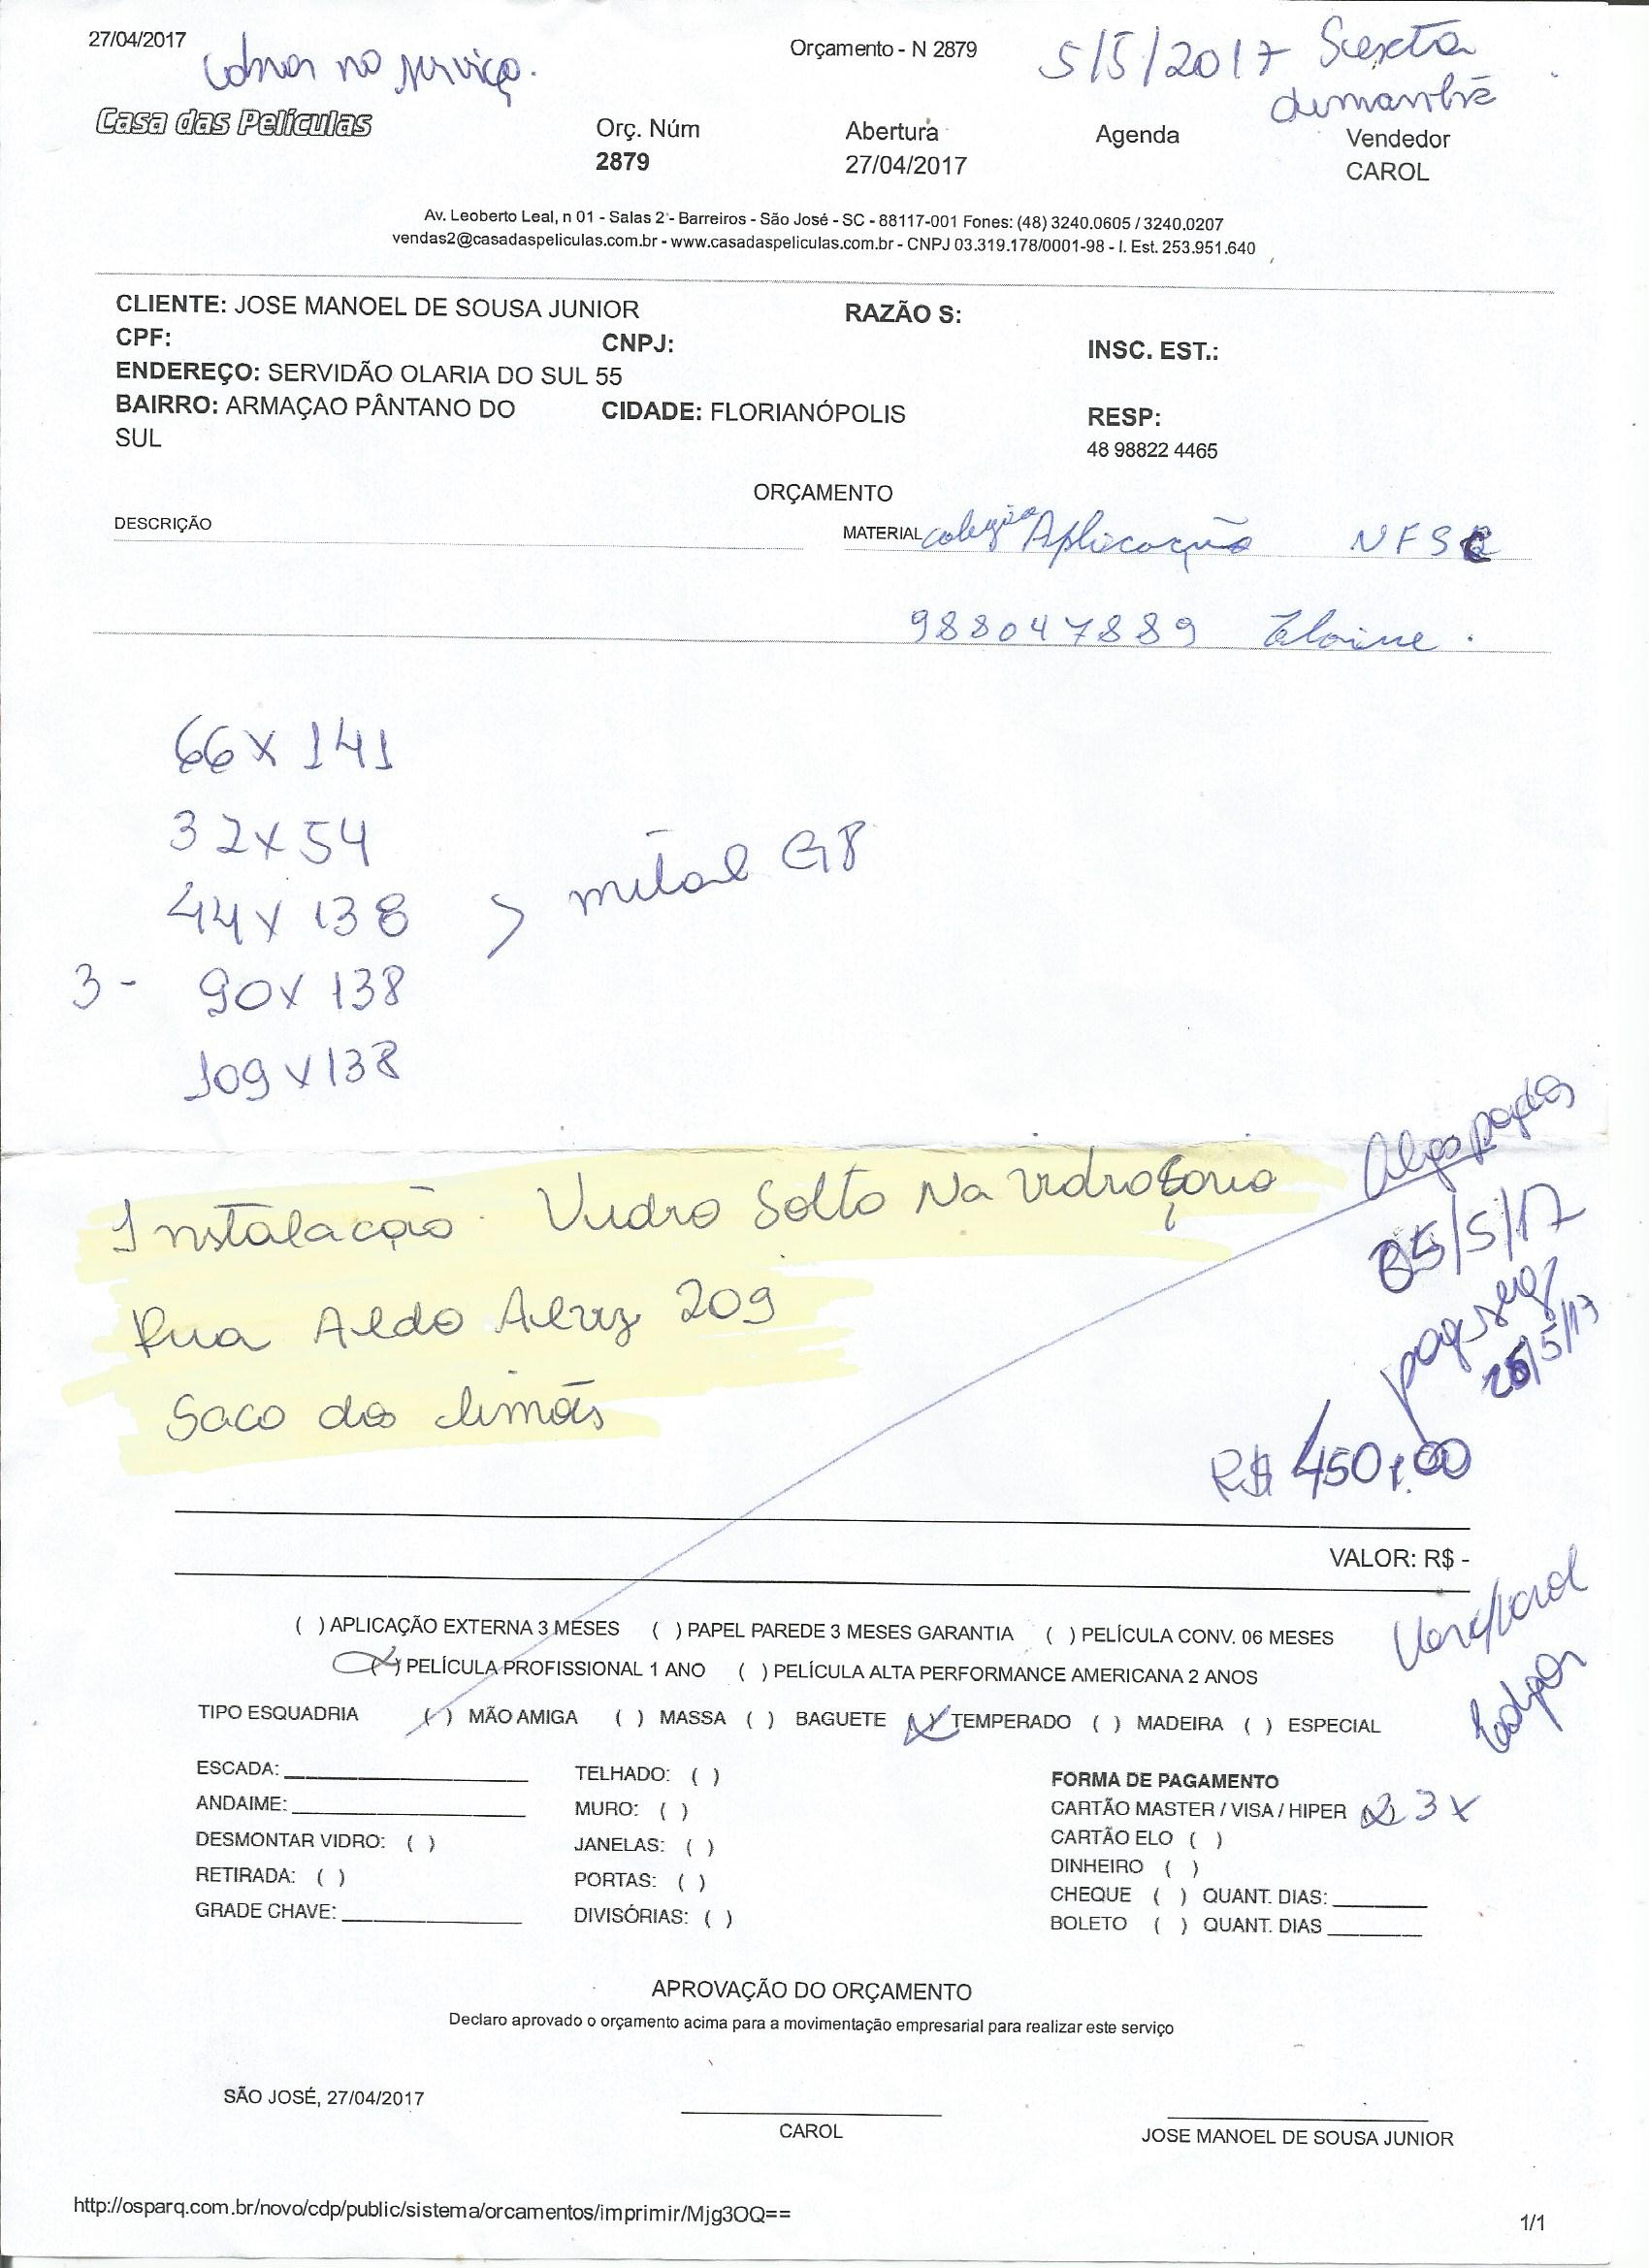 27/04/2017
Orçamento - N 2879
5/5/2017 Sexta
no serviço.
Casa das Películas
Orç. Núm
2879
Abertura
27/04/2017
Agenda
Vendedor
CAROL
Av. Leoberto Leal, n 01 - Salas 2 - Barreiros - São José - SC - 88117-001 Fones: (48) 3240.0605 / 3240.0207
vendas2@casadaspeliculas.com.br - www.casadaspeliculas.com.br - CNPJ 03.319.178/0001-98 - I. Est. 253.951.640
CLIENTE: JOSE MANOEL DE SOUSA JUNIOR
RAZÃO S:
CPF:
CNPJ:
INSC. EST.:
ENDEREÇO: SERVIDÃO OLARIA DO SUL 55
BAIRRO: ARMAÇAO PÂNTANO DO
SUL
CIDADE: FLORIANÓPOLIS
RESP:
48 98822 4465
ORÇAMENTO
DESCRIÇÃO
MATERIAL colegio Aplicação UFSC
988047889
66 x 141
32 x 54
44 x 138
> metal G8
3 - 90 x 138
109 x 138
Instalação. Vidro Solto Na Vidraçaria
Rua Aldo 209
Saco dos limões
05/5/17
pagseg
R$ 450,00
VALOR: R$ -
( ) APLICAÇÃO EXTERNA 3 MESES ( ) PAPEL PAREDE 3 MESES GARANTIA ( ) PELÍCULA CONV. 06 MESES
(x) PELÍCULA PROFISSIONAL 1 ANO ( ) PELÍCULA ALTA PERFORMANCE AMERICANA 2 ANOS
TIPO ESQUADRIA ( ) MÃO AMIGA ( ) MASSA ( ) BAGUETE (x) TEMPERADO ( ) MADEIRA ( ) ESPECIAL
ESCADA:
ANDAIME:
DESMONTAR VIDRO: ( )
RETIRADA: ( )
GRADE CHAVE:
TELHADO: ( )
MURO: ( )
JANELAS: ( )
PORTAS: ( )
DIVISÓRIAS: ( )
FORMA DE PAGAMENTO
CARTÃO MASTER / VISA / HIPER (x) 3x
CARTÃO ELO ( )
DINHEIRO ( )
CHEQUE ( ) QUANT. DIAS:
BOLETO ( ) QUANT. DIAS
APROVAÇÃO DO ORÇAMENTO
Declaro aprovado o orçamento acima para a movimentação empresarial para realizar este serviço
SÃO JOSÉ, 27/04/2017
CAROL
JOSE MANOEL DE SOUSA JUNIOR
http://osparq.com.br/novo/cdp/public/sistema/orcamentos/imprimir/Mjg3OQ==
1/1